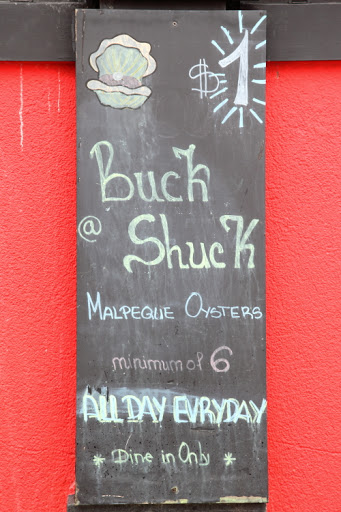 $1
Buck
@ Shuck
MALPEQUE OYSTERS
minimum of 6
ALL DAY EVRYDAY
* Dine in Only *